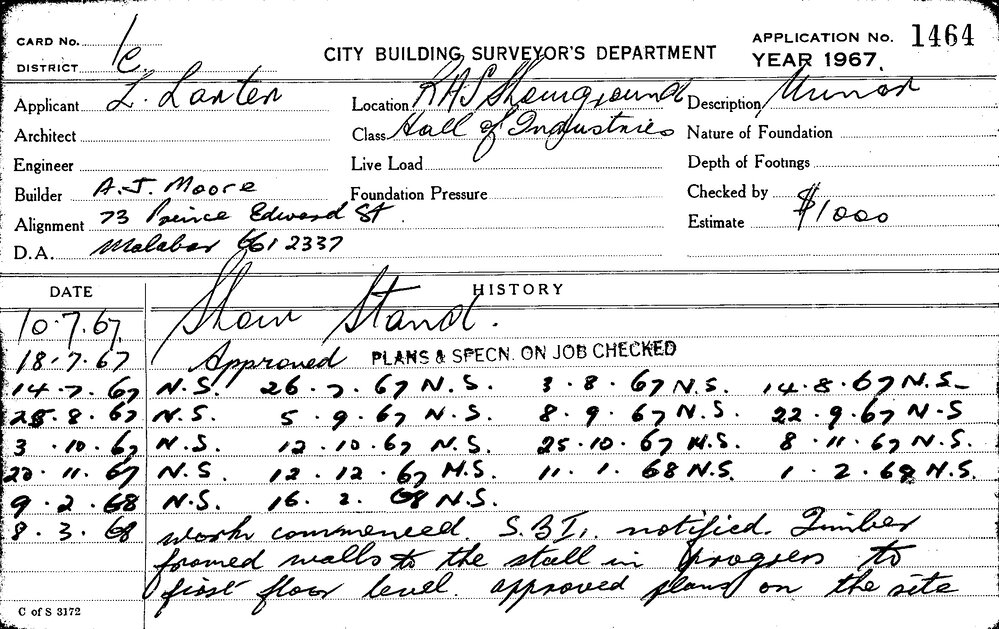 CARD No. 1c
DISTRICT
CITY BUILDING SURVEYOR'S DEPARTMENT
APPLICATION No. 1464
YEAR 1967.
Applicant L. Laxten Location RAS Showground Description Minor
Architect Class Hall of Industries Nature of Foundation
Engineer Live Load Depth of Footings
Builder A.J. Moore Foundation Pressure Checked by
Alignment 73 Prince Edward St. Estimate $1000
D.A. Malabar 661 2337
DATE HISTORY
10.7.67 Show Stand.
18.7.67 Approved PLANS & SPECN. ON JOB CHECKED
14.7.67 N.S. 26.7.67 N.S. 3.8.67 N.S. 14.8.67 N.S.
25.8.67 N.S. 5.9.67 N.S. 8.9.67 N.S. 22.9.67 N.S
3.10.67 N.S. 12.10.67 N.S. 25.10.67 N.S. 8.11.67 N.S.
20.11.67 N.S 12.12.67 N.S. 11.1.68 N.S. 1.2.68 N.S.
9.2.68 N.S. 16.2.68 N.S.
8.3.68 work commenced. S.B.I. notified. Timber
framed walls to the stall in progress to
first floor level. approved plans on the site
C of S 3172